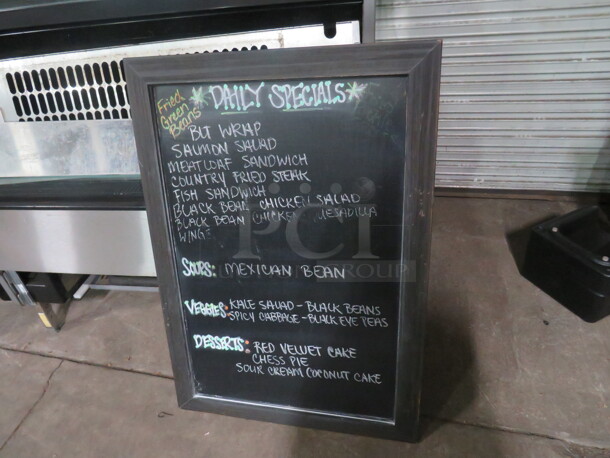 Fried
Green
Beans
DAILY SPECIALS
BLT WRAP
SALMON SALAD
MEATLOAF SANDWICH
COUNTRY FRIED STEAK
FISH SANDWICH
BLACK BEAN CHICKEN SALAD
BLACK BEAN CHICKEN QUESADILLA
WINGS
SOUPS: MEXICAN BEAN
VEGGIES: KALE SALAD - BLACK BEANS
SPICY CABBAGE - BLACK EYE PEAS
DESSERTS: RED VELVET CAKE
CHESS PIE
SOUR CREAM COCONUT CAKE
PCI
GROUP